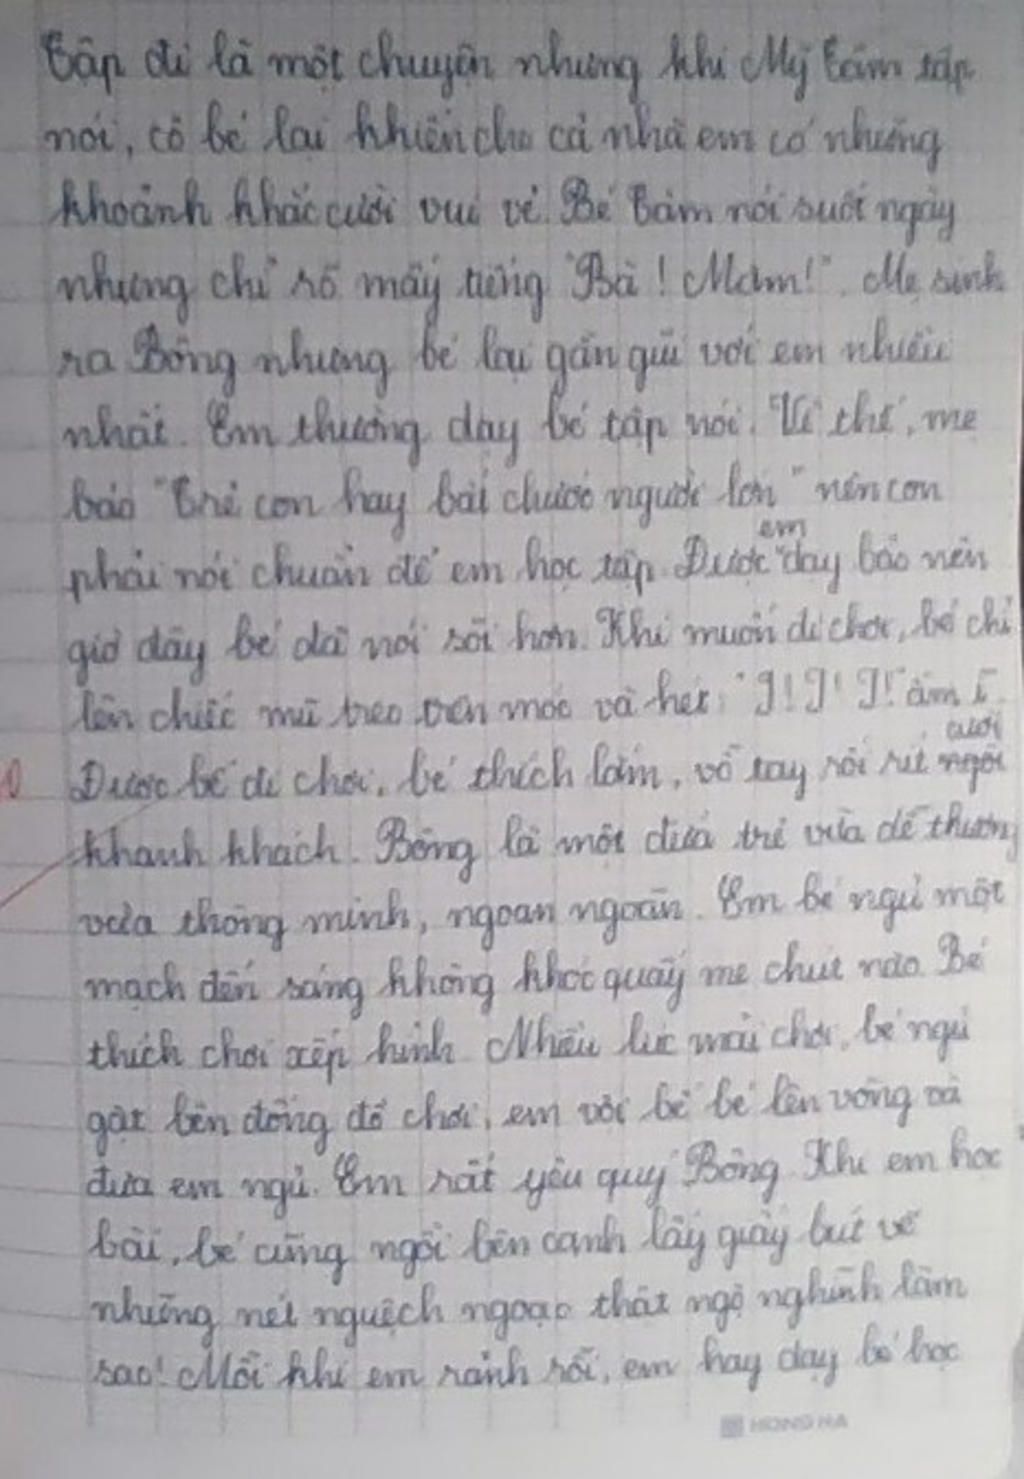 Tập đi là một chuyện nhưng khi Mỹ Tâm tập
nói, cô bé lại khiến cho cả nhà em có những
khoảnh khắc cười vui vẻ. Bé Tâm nói suốt ngày
nhưng chỉ rõ mấy tiếng "Bà! Măm!". Mẹ sinh
ra Bông nhưng bé lại gần gũi với em nhiều
nhất. Em thường dạy bé tập nói. Vì thế, mẹ
bảo "Trẻ con hay bắt chước người lớn" nên con
phải nói chuẩn để em học tập. Được em dạy bảo nên
giờ đây bé đã nói sõi hơn. Khi muốn đi chơi, bé chỉ
lên chiếc mũ treo trên móc và hét: "I! I! I!" ầm ĩ.
Được bế đi chơi, bé thích lắm, vỗ tay rồi rít ngồi cười
khanh khách. Bông là một đứa trẻ vừa dễ thương
vừa thông minh, ngoan ngoãn. Em bé ngủ một
mạch đến sáng không khóc quấy mẹ chút nào. Bé
thích chơi xếp hình. Nhiều lúc mải chơi, bé ngủ
gật bên đống đồ chơi, em vội bế bé lên võng và
đưa em ngủ. Em rất yêu quý Bông. Khi em học
bài, bé cũng ngồi bên cạnh lấy giấy bút vẽ
những nét nguệch ngoạc thật ngộ nghĩnh làm
sao! Mỗi khi em rảnh rỗi, em hay dạy bé học
HONG HA